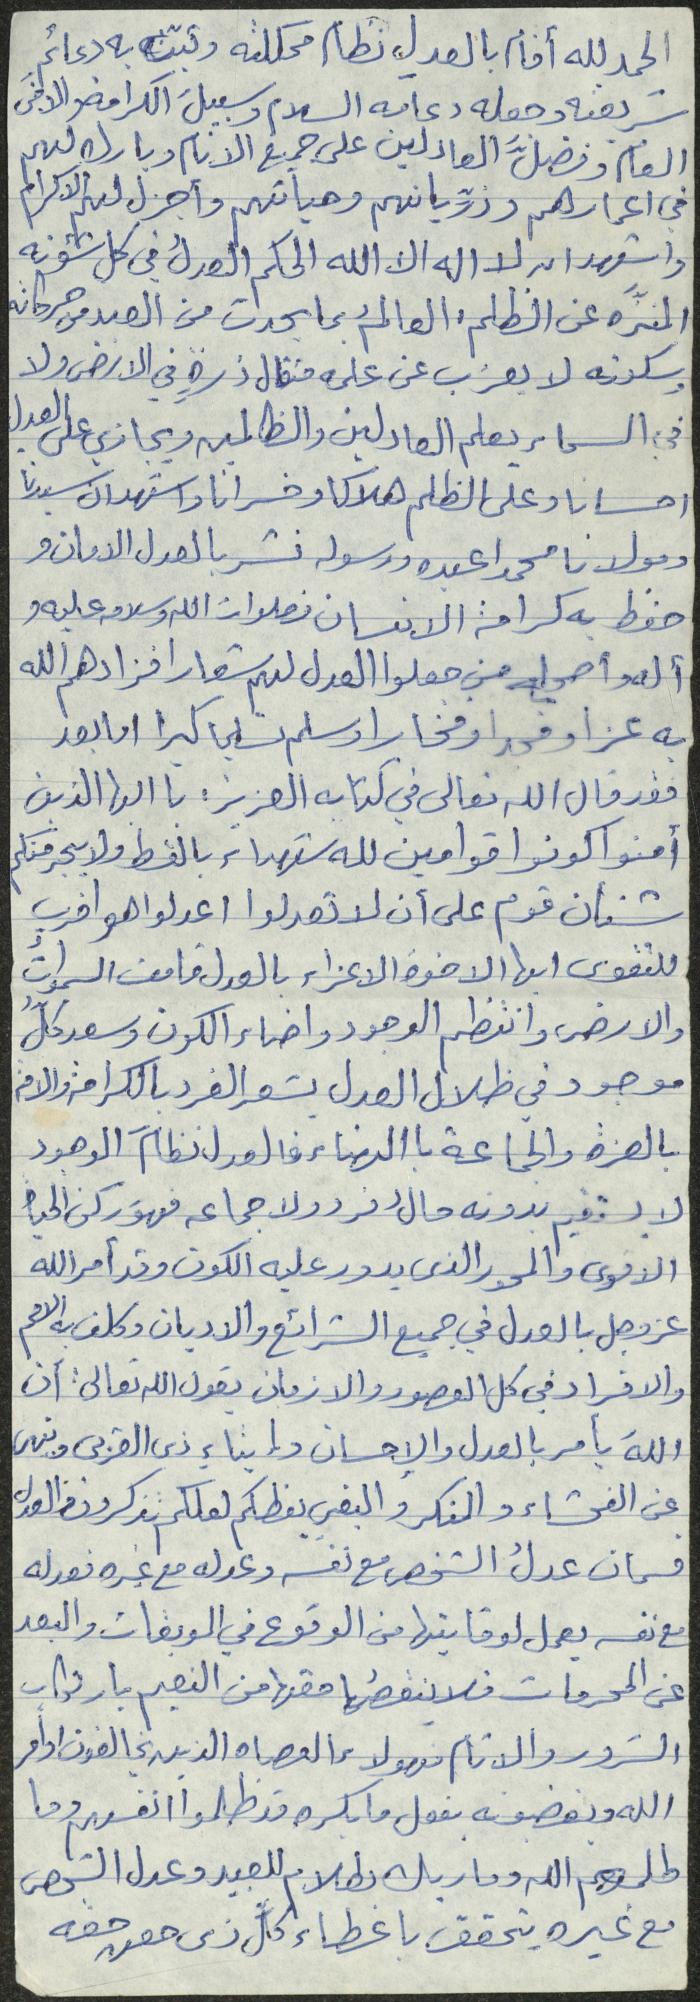 الحمد لله أقام بالعدل نظام مملكته وثبت به دعائم
شريعته وجعله دعامه السلام وسبيل الكرامه والأخى
العام وفضل العادلين على جميع الانام وبارك لهم
في اعمارهم وذرياتهم وحياتهم وأجزل لهم الاكرام
واشهد ان لا اله الا الله الحكم العدل في كل شئونه
المنزه عن الظلم العالم بما يحدث من العبد من حركاته
وسكونه لا يعزب عن علمه مثقال ذرة في الارض ولا
في السماء يعلم العادلين والظالمين ويجازي على العدل
احسانا وعلى الظلم هلاكا وخسرانا واشهد ان سيدنا
ومولانا محمدا عبده ورسوله نشر بالعدل الامان و
حفظ به كرامة الانسان فصلوات الله وسلامه عليه و
آله وأصحابه من جعلوا العدل لهم شعارا فزادهم الله
به عزا ومجدا وفخارا وسلم تسليما كبيرا اما بعد
فقد قال الله تعالى في كتابه العزيز: يا ايها الذين
آمنوا كونوا قوامين لله شهداء بالقسط ولا يجرمنكم
شنأن قوم على أن لا تعدلوا اعدلوا هو اقرب
للتقوى ايها الاخوة الاعزاء بالعدل قامت السموات
والارض وانتظم الوجود واضاء الكون وسعد كل
موجود في ظلال العدل يشعر الفرد بالكرامة والامة
بالعزة والجماعة با الهناء فالعدل نظام الوجود
لا يستقيم بدونه حال فرد ولا جماعه فهو ركن الحياة
الاقوى والمحور الذى يدور عليه الكون وقد أمر الله
عز وجل بالعدل في جميع الشرائع والاديان وكلف به الامم
والافراد في كل العصور والازمان يقول الله تعالى: أن
الله يأمر بالعدل والإحسان وإيتاء ذى القربى وينهى
عن الفحشاء والمنكر والبغي يعظكم لعلكم تذكرون والعدل
قسمان عدل الشخص مع نفسه وعدله مع غيره فعدله
مع نفسه يعمل لوقايتها من الوقوع في الموبقات والبعد
عن المحرمات فلا ينقصها حقها من النعيم بارتكاب
الشرور والآثام فهولاء العصاه الذين يخالفون اوامر
الله ويغضبونه بفعل ما يكره قد ظلموا انفسهم وما
ظلمهم الله وما ربك بظلام للعبيد وعدل الشخص
مع غيره يتحقق باعطاء كل ذى حق حقه